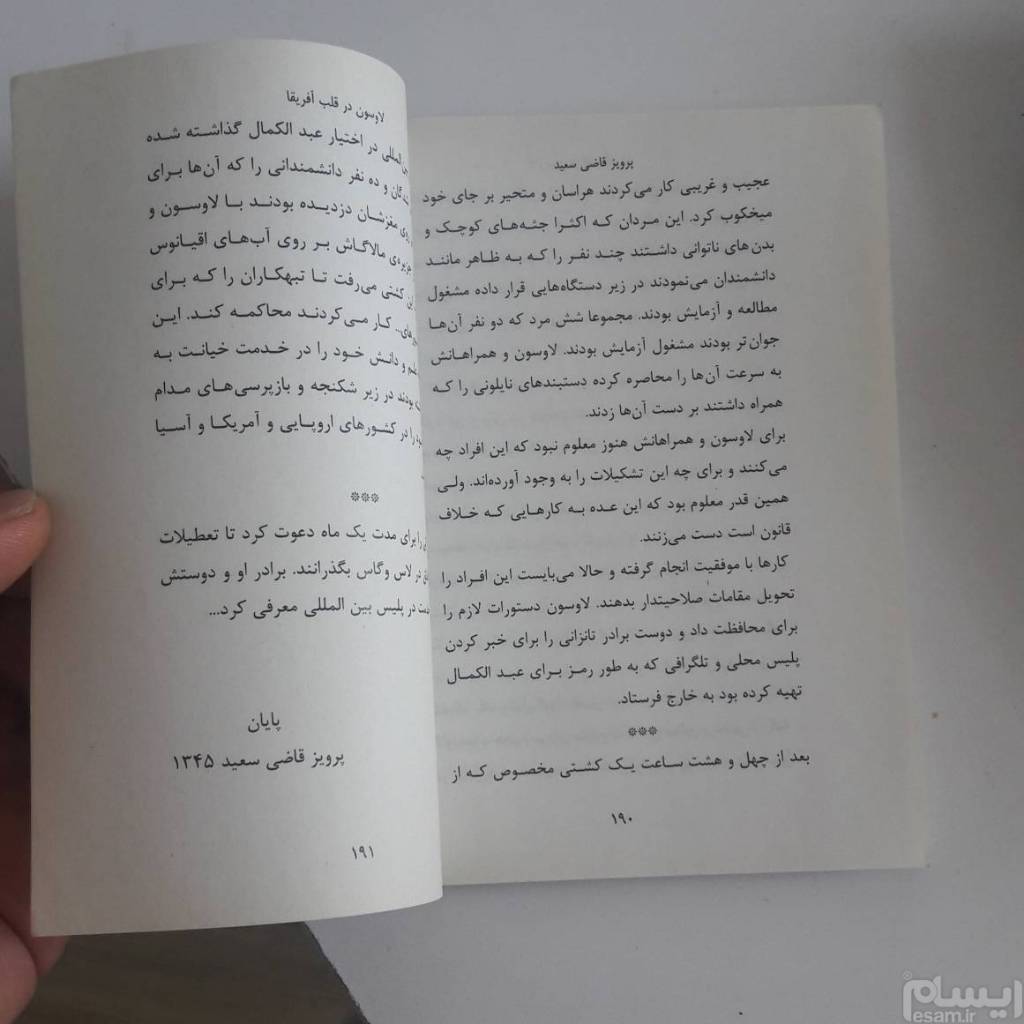 پرویز قاضی سعید
عجیب و غریبی کار می‌کردند هراسان و متحیر بر جای خود
میخکوب کرد. این مردان که اکثرا جثه‌های کوچک و
بدن های ناتوانی داشتند چند نفر را که به ظاهر مانند
دانشمندان می‌نمودند در زیر دستگاه‌هایی قرار داده مشغول
مطالعه و آزمایش بودند. مجموعا شش مرد که دو نفر آن‌ها
جوان‌تر بودند مشغول آزمایش بودند. لاوسون و همراهانش
به سرعت آن‌ها را محاصره کرده دستبندهای نایلونی را که
همراه داشتند بر دست آن‌ها زدند.
برای لاوسون و همراهانش هنوز معلوم نبود که این افراد چه
می‌کنند و برای چه این تشکیلات را به وجود آورده‌اند. ولی
همین قدر معلوم بود که این عده به کارهایی که خلاف
قانون است دست می‌زنند.
کارها با موفقیت انجام گرفته و حالا می‌بایست این افراد را
تحویل مقامات صلاحیتدار بدهند. لاوسون دستورات لازم را
برای محافظت داد و دوست برادر تانزانی را برای خبر کردن
پلیس محلی و تلگرافی که به طور رمز برای عبد الکمال
تهیه کرده بود به خارج فرستاد.
***
بعد از چهل و هشت ساعت یک کشتی مخصوص که از
۱۹۰
لاوسون در قلب آفریقا
المللی در اختیار عبد الکمال گذاشته شده
و ده نفر دانشمندانی را که آن‌ها برای
مغزشان دزدیده بودند با لاوسون و
مالاگاش بر روی آب‌های اقیانوس
کشتی می‌رفت تا تبهکاران را که برای
کار می‌کردند محاکمه کند. این
و دانش خود را در خدمت خیانت به
بودند در زیر شکنجه و بازپرسی‌های مدام
را در کشورهای اروپایی و آمریکا و آسیا
***
را برای مدت یک ماه دعوت کرد تا تعطیلات
در لاس وگاس بگذرانند. برادر او و دوستش
در پلیس بین المللی معرفی کرد...
پایان
پرویز قاضی سعید ۱۳۴۵
۱۹۱
ایسام
esam.ir